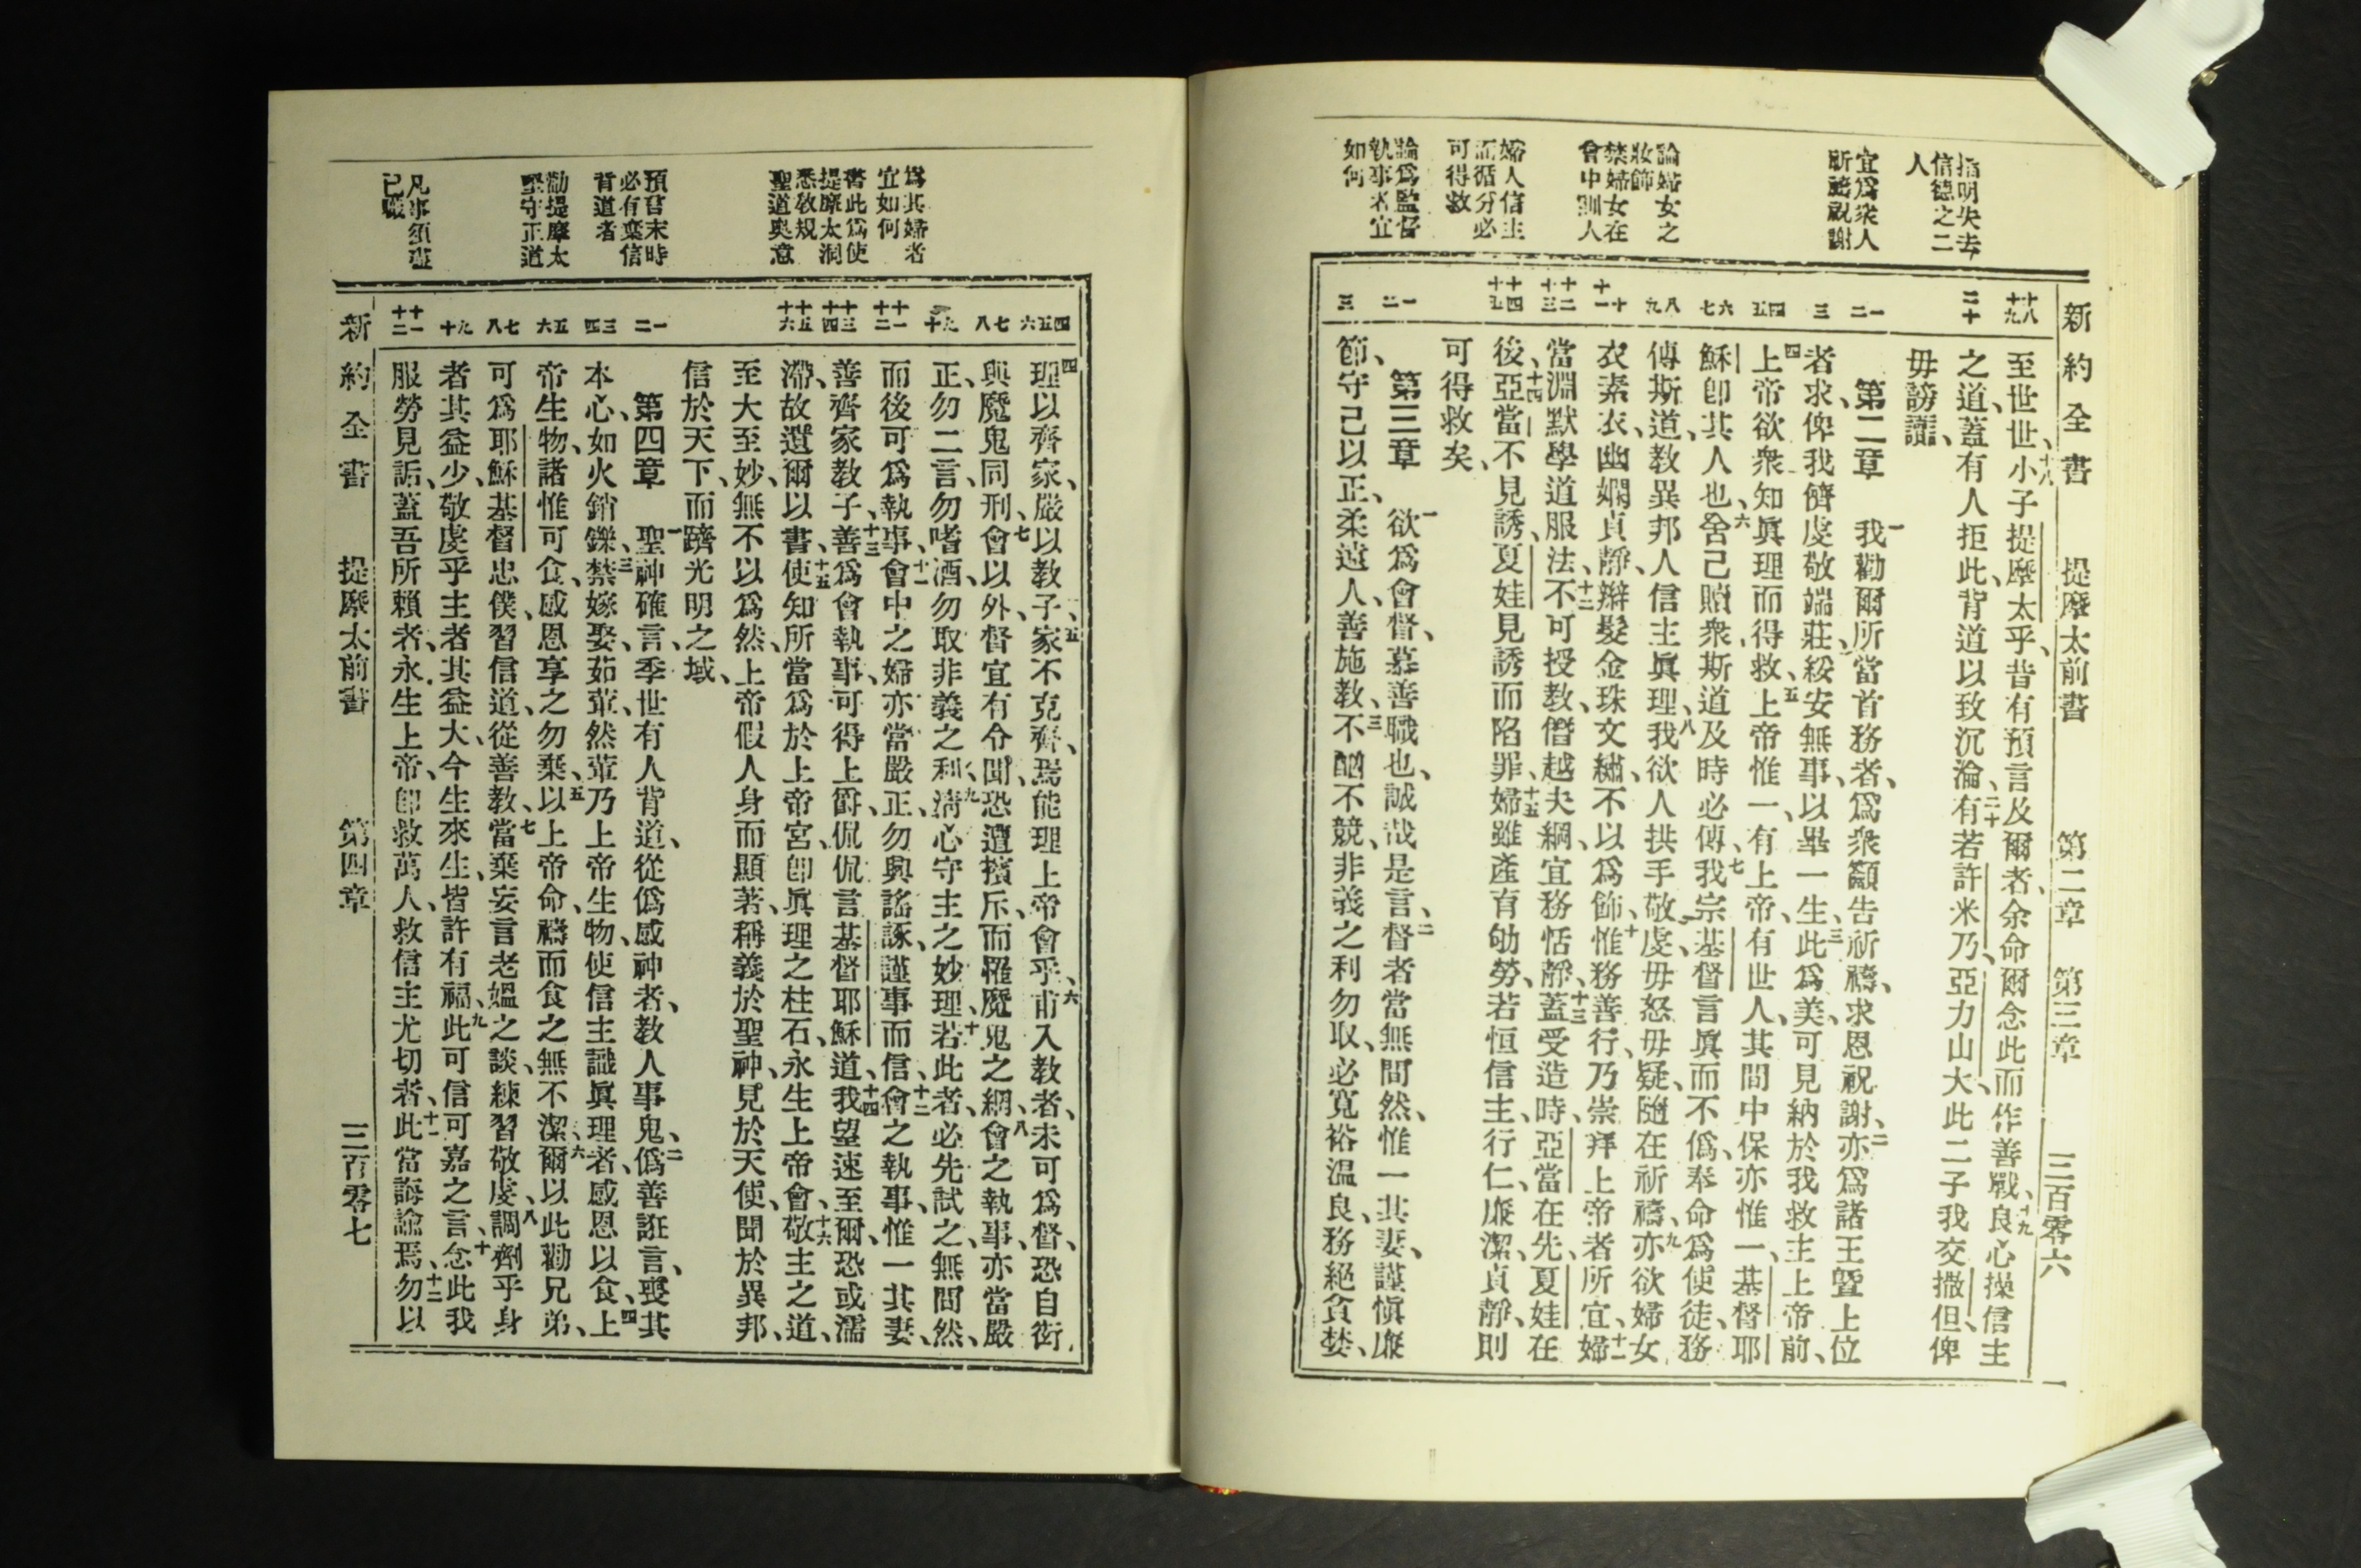 新約全書 提摩太前書 第二章 第三章 三百零六
指明失去
信德之二
人
宜爲衆人
所禱祝謝
論婦女之
妝飾
禁婦女在
會中訓人
婦人信主
而循分必
可得救
論爲監督
執事者宜
如何
十八
十九
二十
一
二
三
四
五
六
七
八
九
十
十一
十二
十三
十四
十五
一
二
三
至世世、十八小子提摩太乎、昔有預言及爾者、余命爾念此而作善戰、十九良心操信主
之道、蓋有人拒此、背道以致沉淪、二十有若許米乃、亞力山大、此二子我交撒但、俾
毋謗讟、
第二章 一我勸爾所當首務者、爲衆籲告祈禱、求恩祝謝、二亦爲諸王曁上位
者求、俾我儕虔敬端莊、綏安無事、以畢一生、三此爲美、可見納於我救主上帝前、
四上帝欲衆知眞理而得救、五上帝惟一、有上帝、有世人、其間中保亦惟一、基督耶
穌卽其人也、六舍己贖衆、斯道及時必傳、七我宗基督言眞而不僞、奉命爲使徒、務
傳斯道、敎異邦人信主眞理、八我欲人拱手敬虔、毋怒毋疑、隨在祈禱、九亦欲婦女
衣素衣、幽嫻貞靜、辮髮金珠文繡、不以爲飾、十惟務善行、乃崇拜上帝者所宜、十一婦
當淵默學道服法、十二不可授敎、僭越夫綱、宜務恬靜、十三蓋受造時、亞當在先、夏娃在
後、十四亞當不見誘、夏娃見誘而陷罪、十五婦雖產育劬勞、若恒信主、行仁、廉潔、貞靜、則
可得救矣、
第三章 一欲爲會督、慕善職也、誠哉是言、二督者當無間然、惟一其妻、謹愼廉
節、守己以正、柔遠人、善施敎、三不酗不競、非義之利勿取、必寬裕温良、務絕貪婪、
爲其婦者
宜如何
書此爲使
提摩太洞
悉敎規
聖道奧意
預言末時
必有棄信
背道者
勸提摩太
堅守正道
凡事須盡
己職
四
五
六
七
八
九
十
十一
十二
十三
十四
十五
十六
一
二
三
四
五
六
七
八
九
十
十一
十二
四理以齊家、嚴以敎子、五家不克齊、焉能理上帝會乎、六甫入敎者、未可爲督、恐自衒、
與魔鬼同刑、七會以外、督宜有令聞、恐遭擯斥、而罹魔鬼之網、八會之執事、亦當嚴
正、勿二言、勿嗜酒、勿取非義之利、九淸心守主之妙理、十若此者、必先試之、無間然、
而後可爲執事、十一會中之婦亦當嚴正、勿興謠諑、謹事而信、十二會之執事、惟一其妻、
善齊家敎子、十三善爲會執事、可得上爵、侃侃言基督耶穌道、十四我望速至爾、恐或濡
滯、故遺爾以書、十五使知所當爲於上帝宮、卽眞理之柱石、永生上帝會、十六敬主之道、
至大至妙、無不以爲然、上帝假人身而顯著、稱義於聖神、見於天使、聞於異邦、
信於天下、而躋光明之域、
第四章 一聖神確言、季世有人背道、從僞感神者、敎人事鬼、二僞善誑言、喪其
本心、如火銷鑠、三禁嫁娶、茹葷、然葷乃上帝生物、使信主識眞理者、感恩以食、四上
帝生物、諸惟可食、感恩享之勿棄、五以上帝命、禱而食之、無不潔、六爾以此勸兄弟、
可爲耶穌基督忠僕、習信道、從善敎、七當棄妄言老嫗之談、練習敬虔、八調劑乎身
者、其益少、敬虔乎主者、其益大、今生來生、皆許有福、九此可信可嘉之言、十念此我
服勞見詬、蓋吾所賴者、永生上帝、卽救萬人、救信主尤切者、十一此當誨諭焉、十二勿以
新約全書 提摩太前書 第四章 三百零七